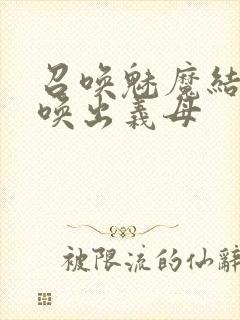 召唤魅魔結
唤出義母
被限流的仙辭